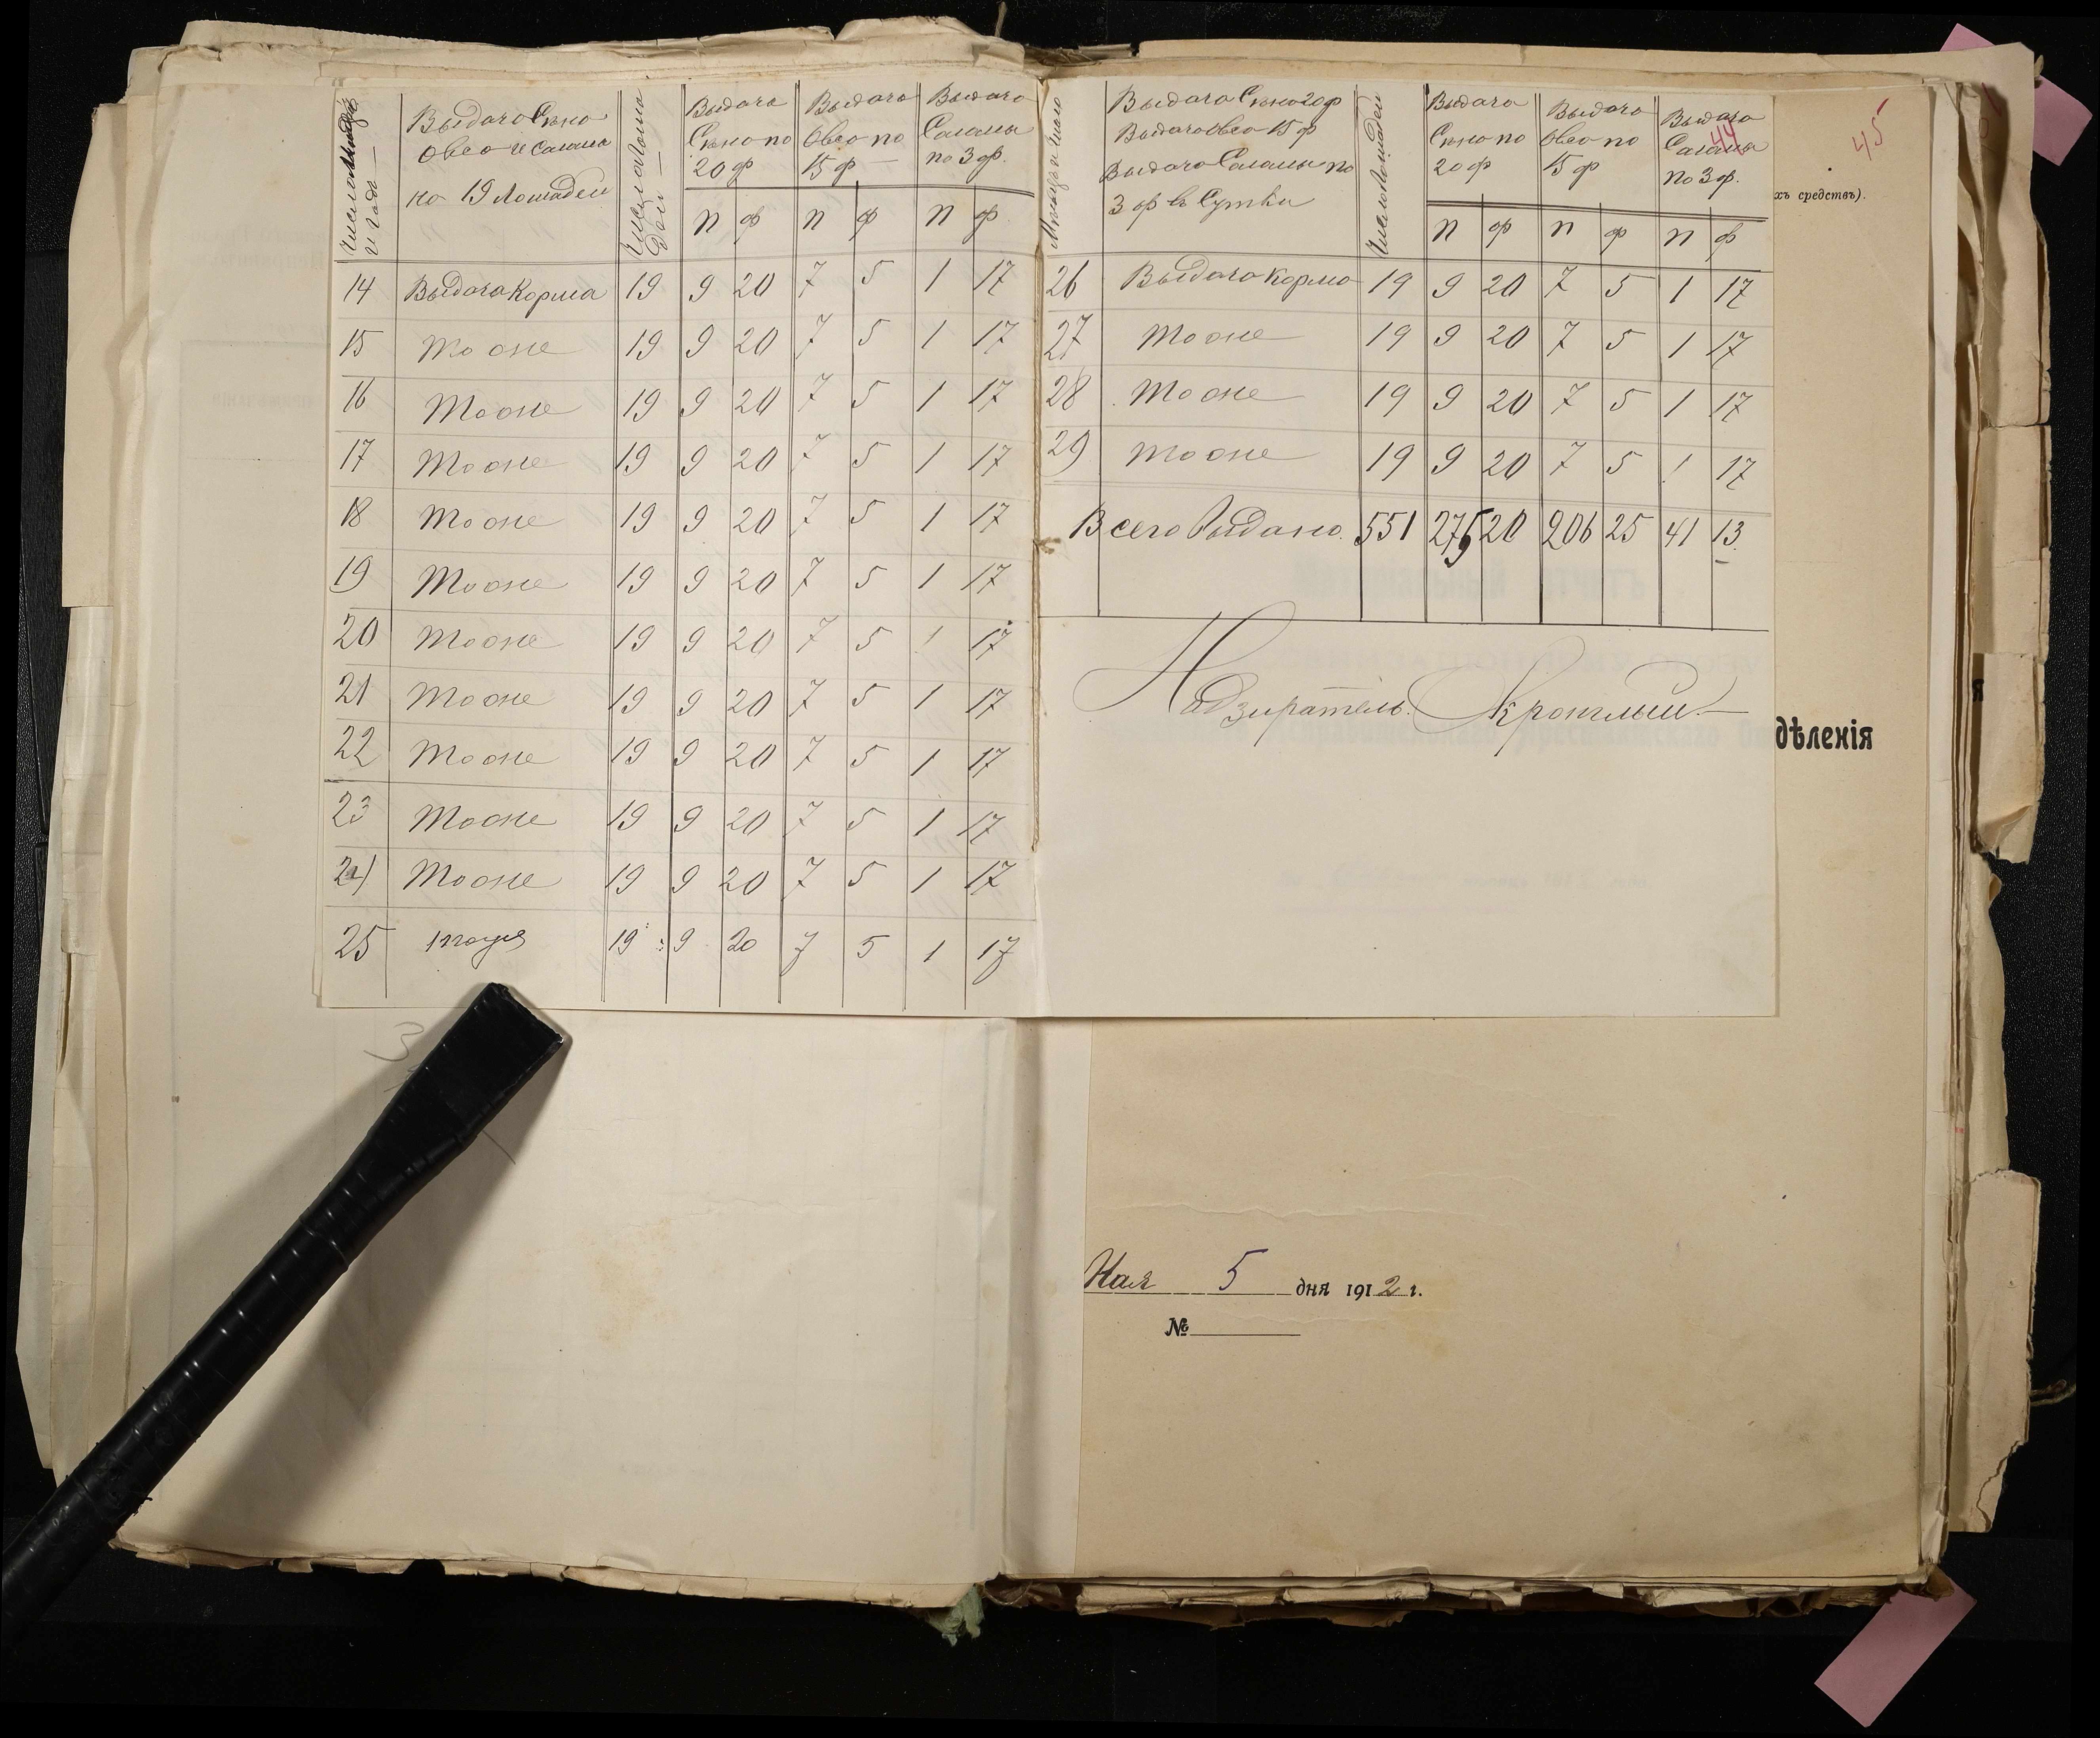 Число Месяца и Года —
Выдача Сено
Овео и Салома
на 19 Лошадей
Число Лошадей —
Выдача Сено по 20 ф
Выдача Овео по 15 ф —
Выдача Саломы по 3 ф.
п ф п ф п ф
14 Выдача Корма 19 9 20 7 5 1 17
15 Тоже 19 9 20 7 5 1 17
16 Тоже 19 9 20 7 5 1 17
17 Тоже 19 9 20 7 5 1 17
18 Тоже 19 9 20 7 5 1 17
19 Тоже 19 9 20 7 5 1 17
20 Тоже 19 9 20 7 5 1 17
21 Тоже 19 9 20 7 5 1 17
22 Тоже 19 9 20 7 5 1 17
23 Тоже 19 9 20 7 5 1 17
24 Тоже 19 9 20 7 5 1 17
25 19 9 20 7 5 1 17
Месяц и число
Выдача Сено 20 ф
Выдача Овео 15 ф
Выдача Саломы по
3 ф в Сутки
Число Лошадей
Выдача Сено по 20 ф
Выдача Овео по 15 ф
Выдача Саломы по 3 ф.
п ф п ф п ф
26 Выдача Корма 19 9 20 7 5 1 17
27 Тоже 19 9 20 7 5 1 17
28 Тоже 19 9 20 7 5 1 17
29 Тоже 19 9 20 7 5 1 17
Всего Выдано 551 275 20 206 25 41 13
Надзиратель
44
45
хъ средствъ).
дѣленія
Мая 5 дня 1912 г.
№